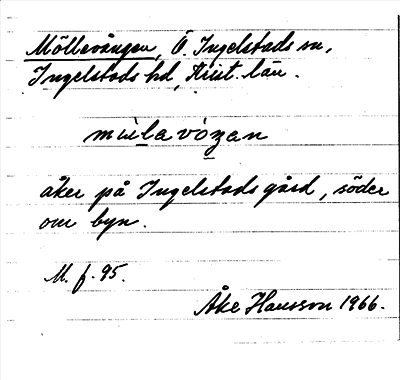 Möllevången, Ö. Ingelstads sn,
Ingelstads hd, Krist. län.
åker på Ingelstads gård, söder
om byn.
M. f. 95.
Åke Hansson 1966.